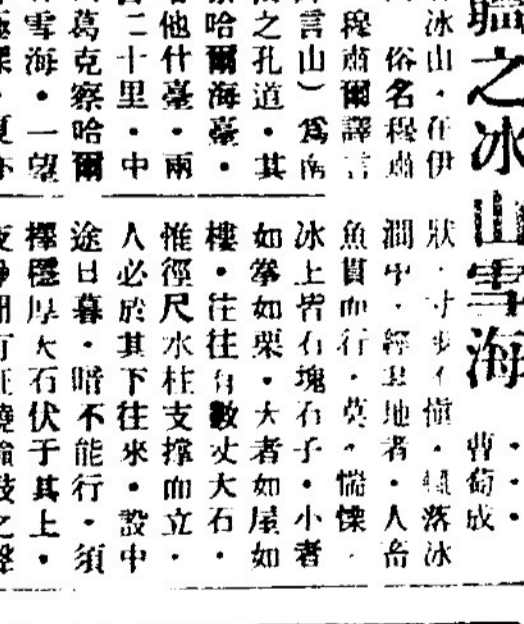 之冰山雪海
冰山．在伊
俗名穆肅
穆肅爾譯言
言山）為南
之孔道．其
哈爾海臺．
他什臺．兩
二十里．中
葛克察哈爾
雪海．一望
狀．寸步不慎．輒落冰
澗中．經其地者．人畜
魚貫而行．莫．惴慄．
冰上皆石塊石子．小者
如拳如栗．大者如屋如
樓．往往有數丈大石．
惟徑尺水柱支撐而立．
人必於其下往來．設中
途日暮．暗不能行．須
擇穩厚大石伏于其上．